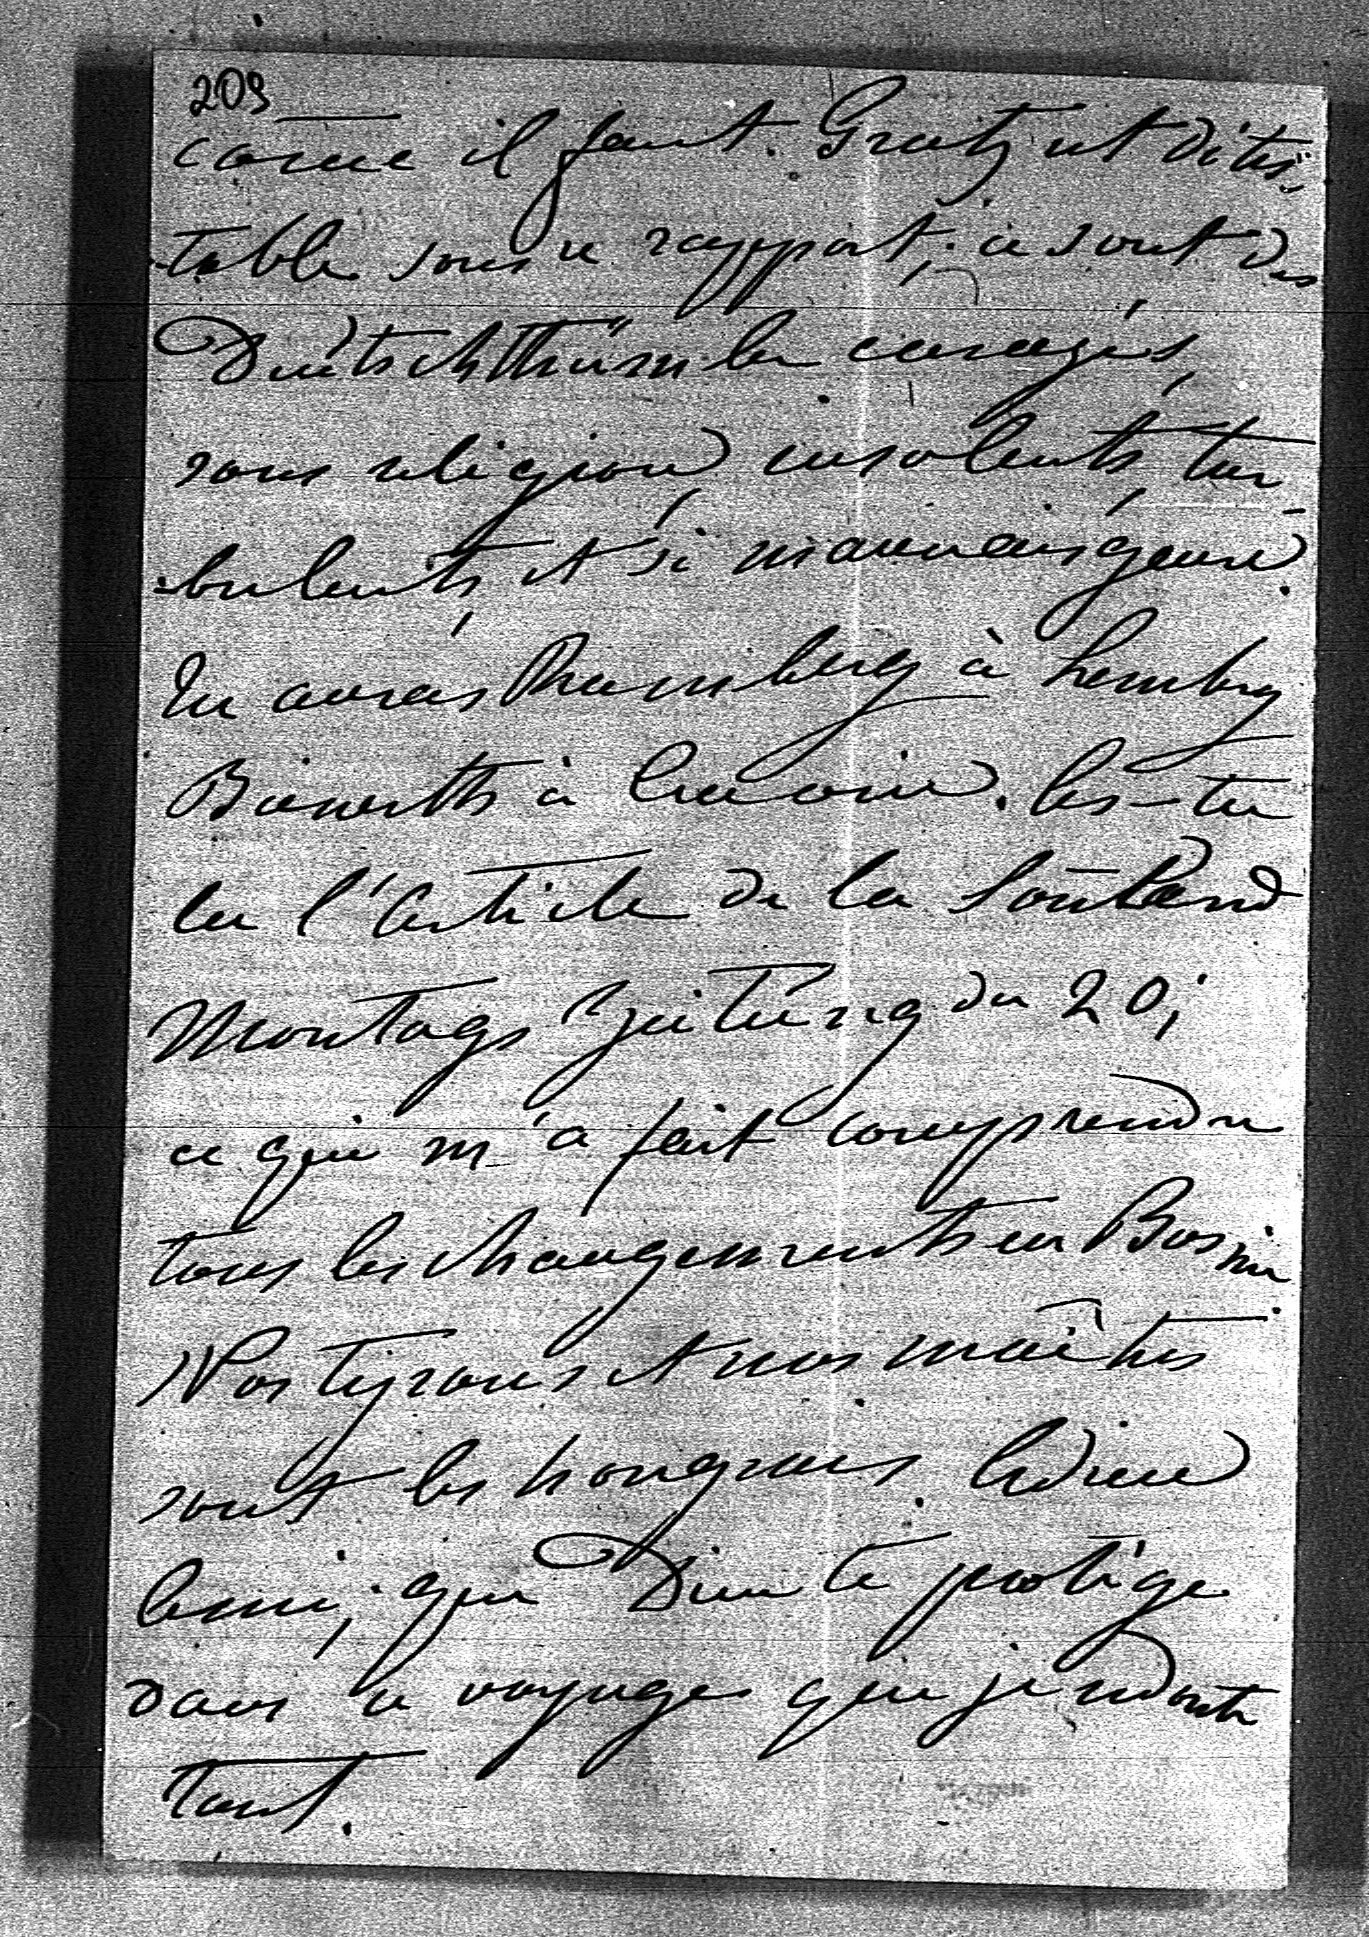 209
come il faut. Gratz est détes-
table sous ce rapport; ce sont des
Deutschthümler enragés,
sans religion, insolents, tur-
bulents, et si mauvais genre.
Tu auras Ramberg à Lemberg
Bienerth à Cracovie. As-tu
lu l'article de la Sonn und
Montags Zeitung du 20;
ce qui m'a fait comprendre
tous les changements en Bosnie.
Nos tyrans et nos maîtres
sont les hongrois. Adieu
Ami, que Dieu te protège
dans ce voyage que je redoute
tant.